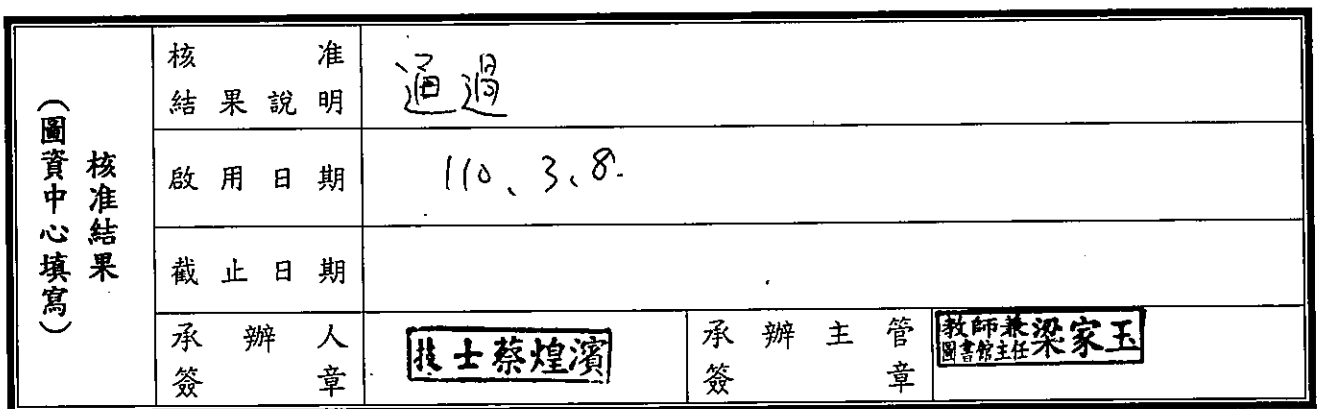 核准結果
(圖資中心填寫)
核准
結果說明
通過
啟用日期
110、3、8.
截止日期
承辦人
簽章
技士蔡煌濱
承辦主管
簽章
教師兼
圖書館主任
梁家玉